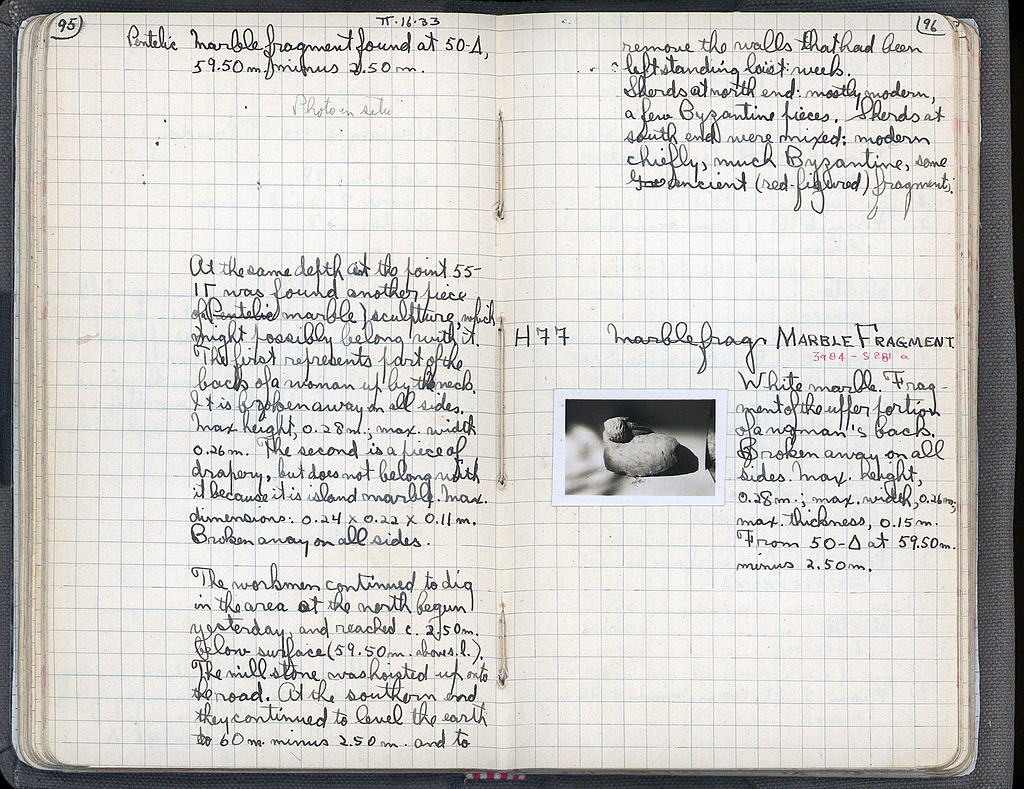 95
II·16·33
Pentelic Marble fragment found at 50-Δ,
59.50 m. minus 2.50 m.
Photo in situ
At the same depth at the point 55-
ΙΓ was found another piece
of Pentelic marble sculpture, which
might possibly belong with it.
The first represents part of the
back of a woman up by the neck.
It is broken away on all sides.
Max height, 0.28 m.; max. width
0.26 m. The second is a piece of
drapery, but does not belong with
it because it is island marble. Max.
dimensions: 0.24 x 0.22 x 0.11 m.
Broken away on all sides.
The workmen continued to dig
in the area at the north begun
yesterday, and reached c. 2.50 m.
below surface (59.50 m. above s.l.).
The mill stone was hoisted up onto
the road. At the southern end
they continued to level the earth
to 60 m. minus 2.50 m. and to
96
remove the walls that had been
left standing last week.
Sherds at north end: mostly modern,
a few Byzantine pieces. Sherds at
south end were mixed: modern
chiefly, much Byzantine, some
ancient (red-figured) fragments.
H77 Marble frag. MARBLE FRAGMENT
3984 - S 281 a
White marble. Frag-
ment of the upper portion
of a woman's back.
Broken away on all
sides. Max. height,
0.28 m.; max. width, 0.26 m;
max. thickness, 0.15 m.
From 50-Δ at 59.50 m.
minus 2.50 m.